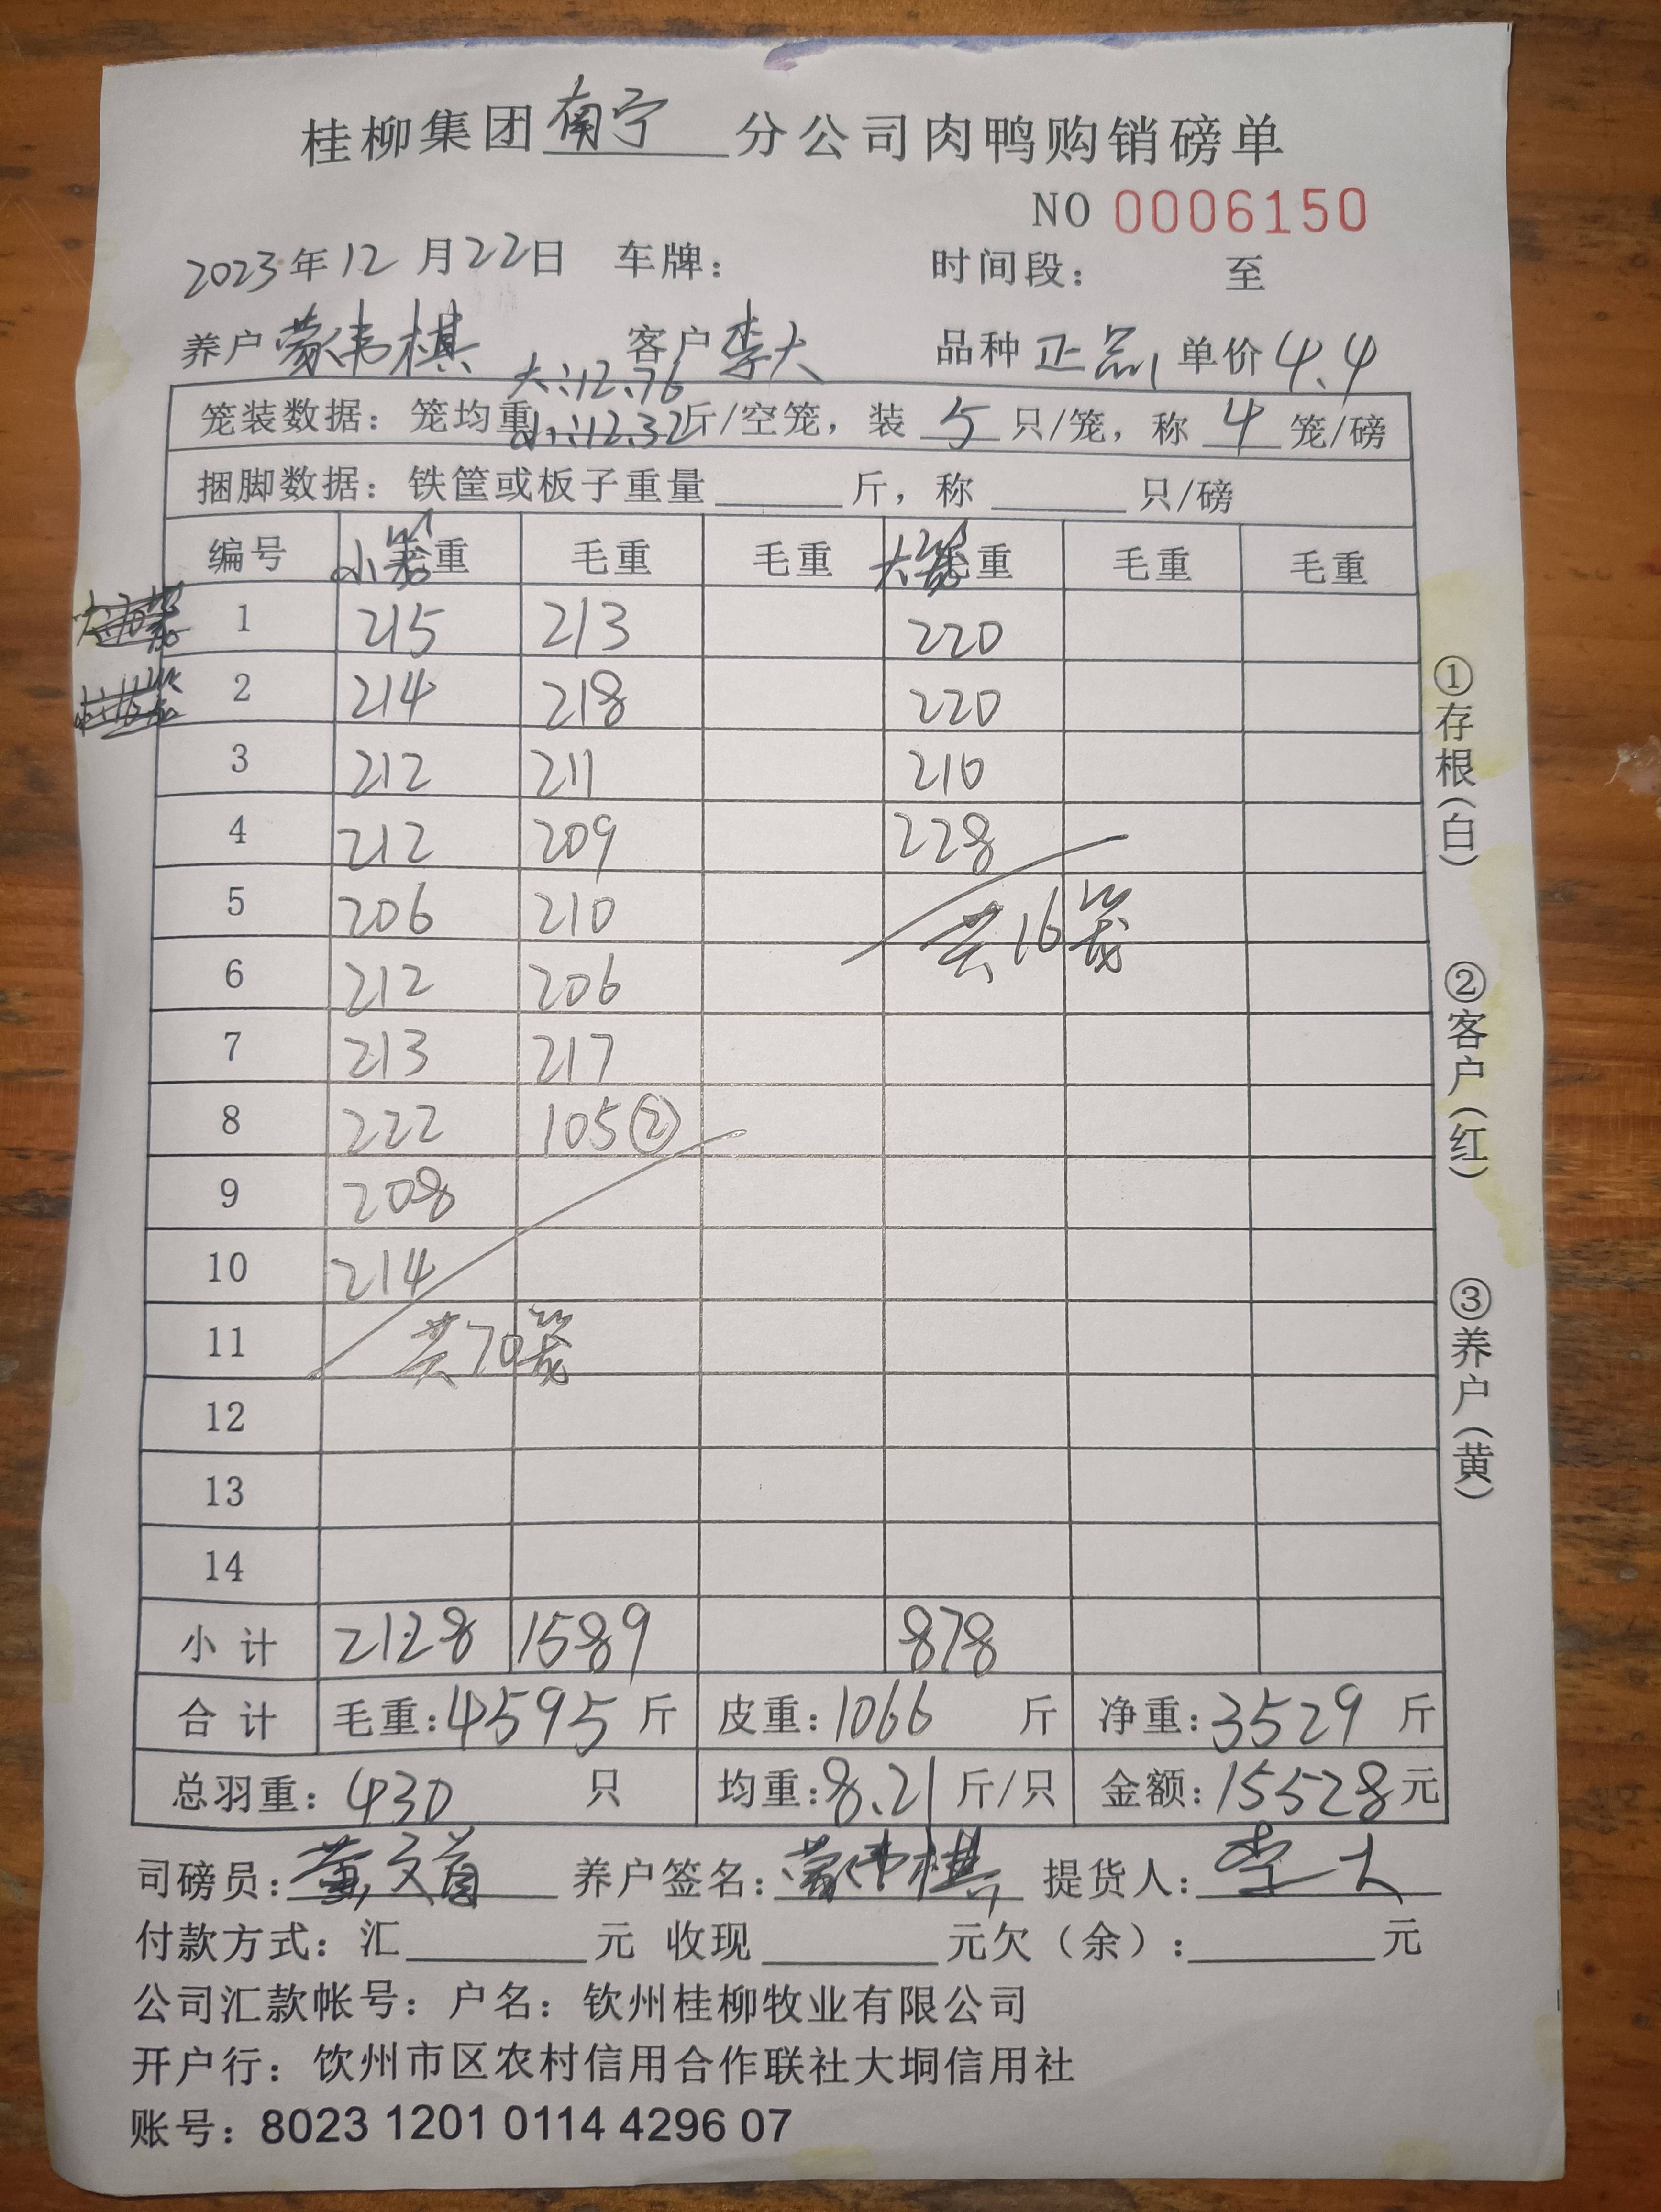 桂柳集团南宁分公司肉鸭购销磅单
NO 0006150
2023年12月22日 车牌： 时间段： 至
养户 蒙伟棋 客户 李大 品种 正品 单价 4.4
大:12.76
笼装数据：笼均重 小:12.32 斤/空笼，装 5 只/笼，称 4 笼/磅
捆脚数据：铁筐或板子重量 斤，称 只/磅
编号 小笼重 毛重 毛重 大笼重 毛重 毛重
1 215 213 220
2 214 218 220
3 212 211 210
4 212 209 228
5 206 210 共16笼
6 212 206
7 213 217
8 222 105②
9 208
10 214
11 共70笼
12
13
14
小计 2128 1589 878
合计 毛重:4595斤 皮重:1066 斤 净重:3529 斤
总羽重: 430 只 均重:8.21 斤/只 金额:15528元
司磅员: 养户签名:蒙伟棋 提货人:李大
付款方式：汇 元 收现 元欠（余）: 元
公司汇款帐号：户名：钦州桂柳牧业有限公司
开户行：饮州市区农村信用合作联社大垌信用社
账号：8023 1201 0114 4296 07
①存根(白)
②客户(红)
③养户(黄)